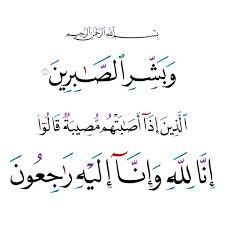 بِسْمِ اللَّهِ الرَّحْمَٰنِ الرَّحِيمِ
وَبَشِّرِ الصَّابِرِينَ
الَّذِينَ إِذَآ أَصَابَتْهُم مُّصِيبَةٌ قَالُوٓا۟
إِنَّا لِلَّهِ وَإِنَّآ إِلَيْهِ رَاجِعُونَ